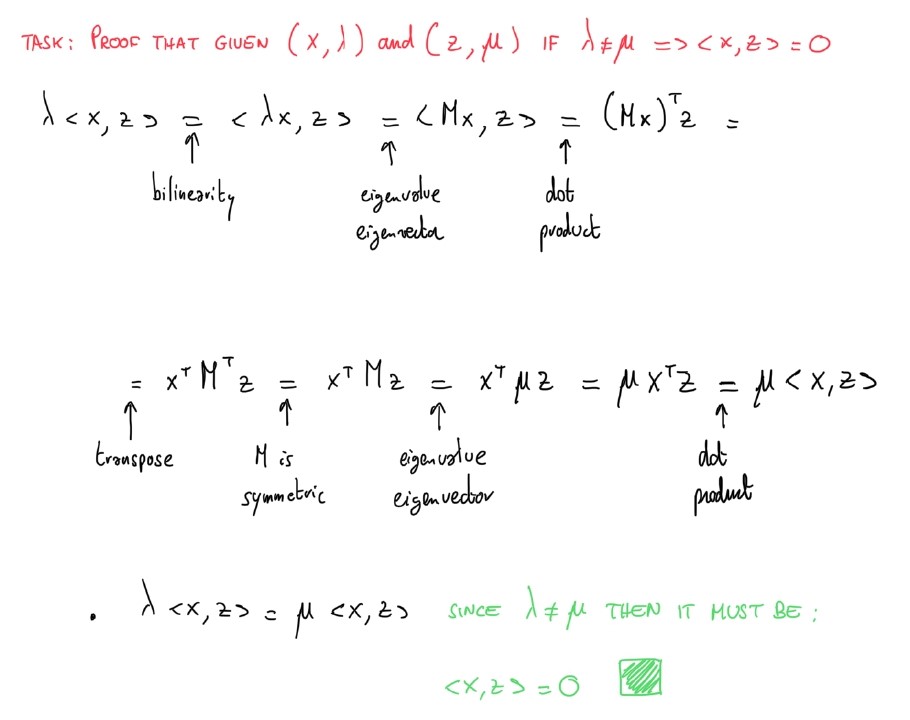 TASK: PROOF THAT GIVEN (x, λ) and (z, μ) IF λ ≠ μ => <x, z> = 0
λ<x, z> = <λx, z> = <Mx, z> = (Mx)ᵀz =
bilinearity
eigenvalue
eigenvector
dot
product
= xᵀMᵀz = xᵀMz = xᵀμz = μxᵀz = μ<x, z>
transpose
M is
symmetric
eigenvalue
eigenvector
dot
product
. λ<x, z> = μ<x, z> SINCE λ ≠ μ THEN IT MUST BE:
<x, z> = 0